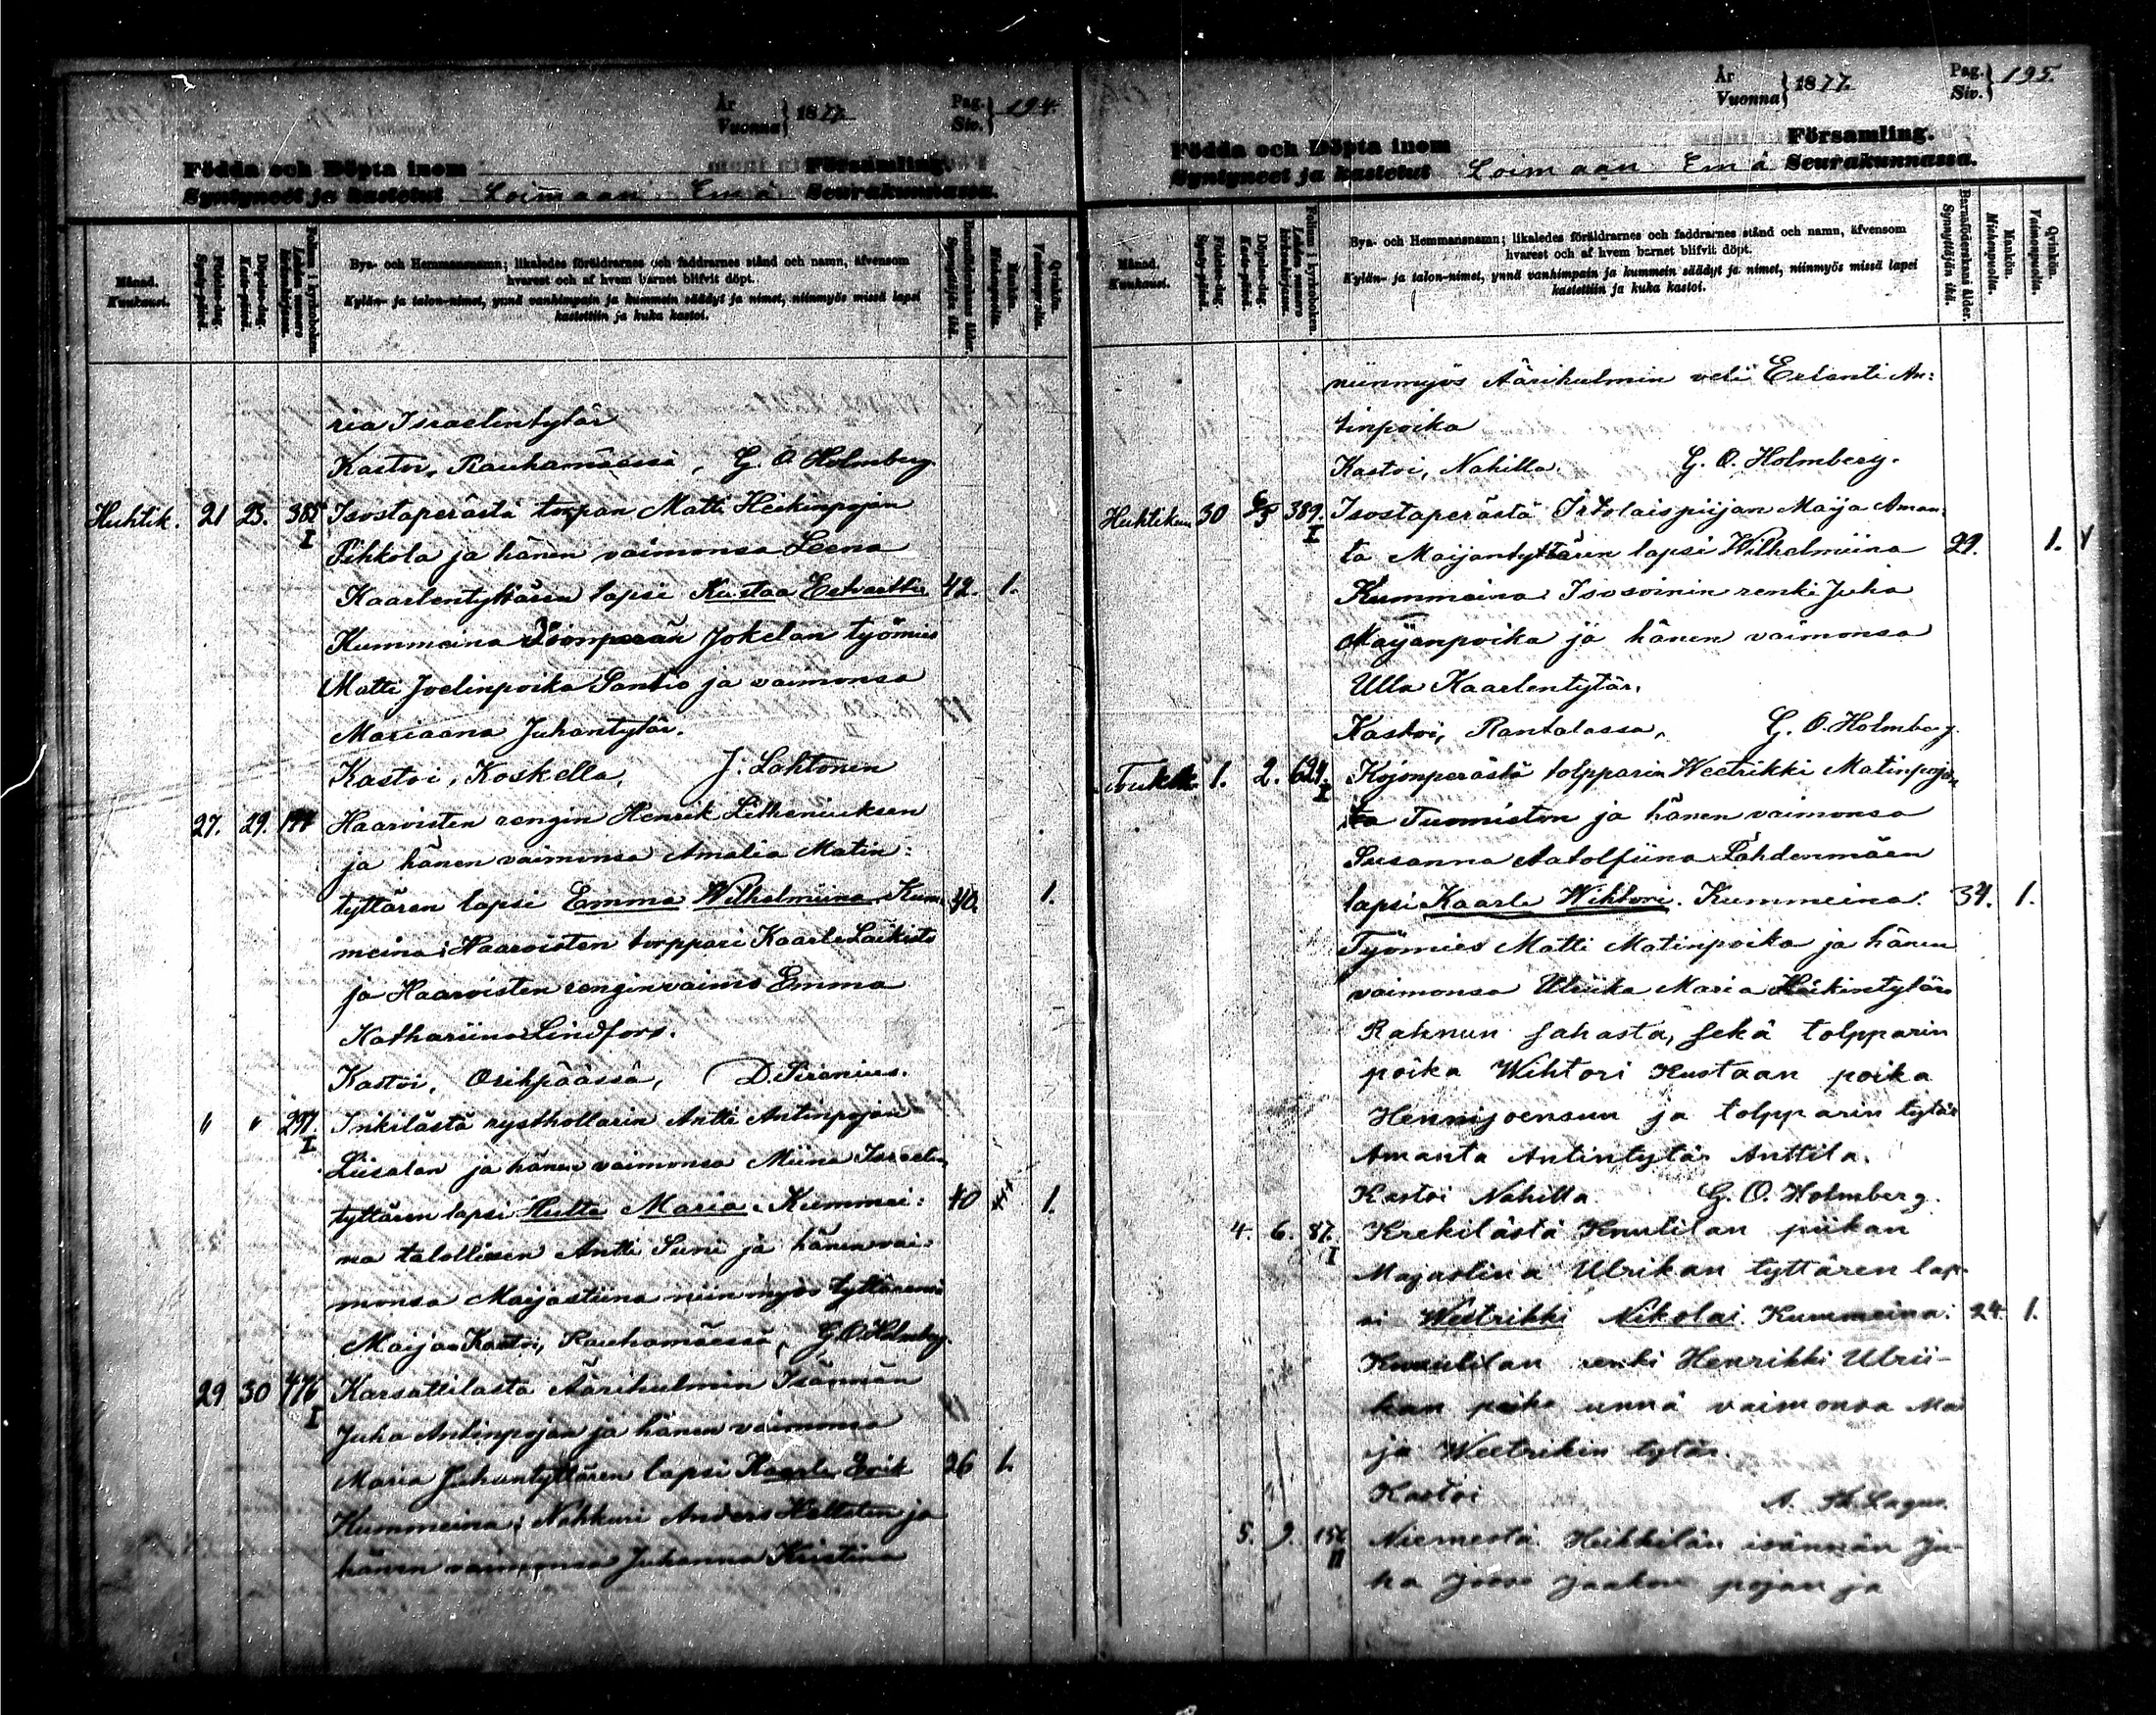 År
Vuonna } 1877
Pag.
Siv. } 194.
Födda och Döpta inom Församling.
Syntyneet ja kastetut Loimaan Emä Seurakunnassa.
Månad.
Kuukausi.
Födelse-dag.
Synty-päivä.
Döpelse-dag.
Kaste-päivä.
Folium i kyrkoboken.
Lehden numero kirkonkirjassa.
Bya- och Hemmansnamn; likaledes föräldrarnes och faddrarnes stånd och namn, äfvensom
hvarest och af hvem barnet blifvit döpt.
Kylän- ja talon-nimet, ynnä vanhimpain ja kummein säädyt ja nimet, niinmyös missä lapsi
kastettiin ja kuka kastoi.
Barnaföderskans ålder.
Synnyttäjän ikä.
Mankön.
Miehenpuolia.
Qvinkön.
Vaimonpuolia.
ria Israelintytär
Kastoi, Rauhamäessä, G. O. Holmberg.
Huhtik. 21 23. 385 I Isostaperästä torpan Matti Heikinpojan
Pihkola ja hänen vaimonsa Leena
Kaarlentyttären lapsi Kustaa Edvartti 42. 1.
Kummeina Jokelan työmies
Matti Joelinpoika Santio ja vaimonsa
Mariaana Juhantytär.
Kastoi, Koskella, J. Lahtonen
27. 29. Haaroisten rengin Henrik Litheniuksen
ja hänen vaimonsa Amalia Matin:
tyttären lapsi Emma Wilhelmiina Kum: 40. 1.
meina: Haaroisten torppari Kaarle Laiksto
ja Haaroisten renginvaimo Emma
Kathariina Lindfors.
Kastoi, Orihpäässä, D. Sirenius.
" " 297. I Inkilästä rysthollarin Antti Antinpojan
Liisalan ja hänen vaimonsa Miina Israelin
tyttären lapsi Hulta Maria. Kummei: 40 1.
na talollisen Antti Suni ja hänen vai:
monsa Maijastiina niin myös tyttärensä
Maija. Kastoi, Rauhamäessä, G. O. Holmberg.
29 30 476 I Karsattilasta Äärihulmin Isännän
Juha Antinpojan ja hänen vaimonsa
Maria Juhantyttären lapsi Kaarle Erik 26 1.
Kummeina: Nahkuri Anders Hellsten ja
hänen vaimonsa Juhanna Kristina
År
Vuonna } 1877.
Pag.
Siv. } 195.
Födda och Döpta inom Församling.
Syntyneet ja kastetut Loimaan Emä Seurakunnassa.
Månad.
Kuukausi.
Födelse-dag.
Synty-päivä.
Döpelse-dag.
Kaste-päivä.
Folium i kyrkoboken.
Lehden numero kirkonkirjassa.
Bya- och Hemmansnamn; likaledes föräldrarnes och faddrarnes stånd och namn, äfvensom
hvarest och af hvem barnet blifvit döpt.
Kylän- ja talon-nimet, ynnä vanhimpain ja kummein säädyt ja nimet, niinmyös missä lapsi
kastettiin ja kuka kastoi.
Barnaföderskans ålder.
Synnyttäjän ikä.
Mankön.
Miehenpuolia.
Qvinkön.
Vaimonpuolia.
niinmyös Äärihulmin veli Erlanti An:
tinpoika
Kastoi, Nahilla. G. O. Holmberg.
Huhtikuu 30 6/5 389. I Isostaperästä Irtolaispiijan Maija Aman:
ta Maijantyttären lapsi Wilhelmiina 29. 1.
Kummeina: Isosoinin renki Juha
Maijanpoika ja hänen vaimonsa
Ulla Kaarlentytär.
Kastoi, Rantalassa, G. O. Holmberg.
Toukok. 1. 2. 621. I Kojonperästä tolpparin Weetrikki Matinpojan
Tuomiston ja hänen vaimonsa
Susanna Aatolfiina Lähdenmäen
lapsi Kaarle Wihtori. Kummeina: 34. 1.
Työmies Matti Matinpoika ja hänen
vaimonsa Ulriika Maria Heikintytär
Raknun sahasta, sekä tolpparin
poika Wihtori Kustaan poika
Hennijoensuu ja tolpparin tytär
Amanta Antintytär Anttila.
Kastoi Nahilla. G. O. Holmberg.
4. 6. 87. I Krekilästä Knutilan piikan
Majastina Ulrikan tyttären lap-
si Weetrikki Nikolai. Kummeina: 24 1.
Knuutilan renki Henrikki Ulrii-
kan poika unnä vaimonsa Mai
ja Weetrikin tytär.
Kastoi A. Th. Lagus.
5. 9. 156 II Niemestä Heikkilän isännän Ju-
ha Joose Jaakon pojan ja